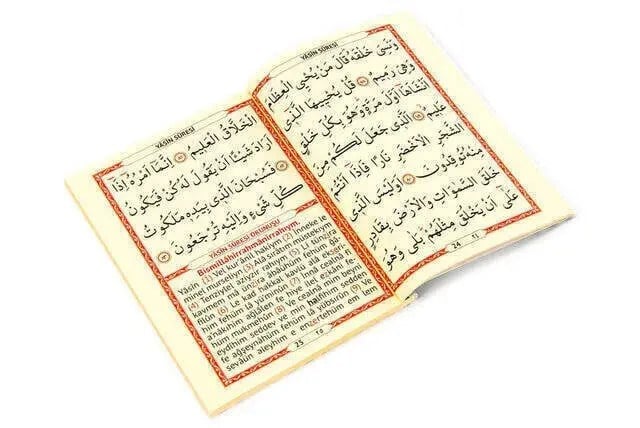 YÂSÎN SÛRESİ
وَنَسِيَ خَلْقَهُ قَالَ مَنْ يُحْيِي الْعِظَامَ
وَهِيَ رَمِيمٌ ﴿٧٨﴾ قُلْ يُحْيِيهَا الَّذِي
اَنْشَاَهَا اَوَّلَ مَرَّةٍ وَهُوَ بِكُلِّ خَلْقٍ
عَلِيمٌ ﴿٧٩﴾ اَلَّذِي جَعَلَ لَكُمْ مِنَ
الشَّجَرِ الْاَخْضَرِ نَارًا فَاِذَا اَنْتُمْ
مِنْهُ تُوقِدُونَ ﴿٨٠﴾ اَوَلَيْسَ الَّذِي
خَلَقَ السَّمٰوَاتِ وَالْاَرْضَ بِقَادِرٍ
عَلٰى اَنْ يَخْلُقَ مِثْلَهُمْ بَلٰى وَهُوَ
24
YÂSÎN SÛRESİ
الْخَلَّاقُ الْعَلِيمُ ﴿٨١﴾ اِنَّمَا اَمْرُهُ اِذَا
اَرَادَ شَيْئًا اَنْ يَقُولَ لَهُ كُنْ فَيَكُونُ
﴿٨٢﴾ فَسُبْحَانَ الَّذِي بِيَدِهِ مَلَكُوتُ
كُلِّ شَيْءٍ وَاِلَيْهِ تُرْجَعُونَ ﴿٨٣﴾
YÂSÎN SÛRESİ OKUNUŞU
Bismillâhirrahmânirrahıym.
Yâsîn (1) Vel kur'ânil hakiym (2) İnneke le
minel murseliyn (3) Alâ sırâtım müstekıym
(4) Tenziylel aziyzir rahıym (5) Li tünzira
kavmem mâ ünzira âbâühüm fehüm ğâ-
filûn (6) Le kad hakkal kavlü alâ ekseri-
him fehüm lâ yü'minûn (7) İnnâ cealnâ fî
a'nâkıhim ağlâlen fe hiye ilel ezkâni fe-
hüm mukmehûn (8) Ve cealnâ mim beyni
eydîhim seddev ve min halfihim sedden
fe ağşeynâhüm fehüm lâ yübsırûn (9) Ve
sevâün aleyhim e enzertehüm em lem
25